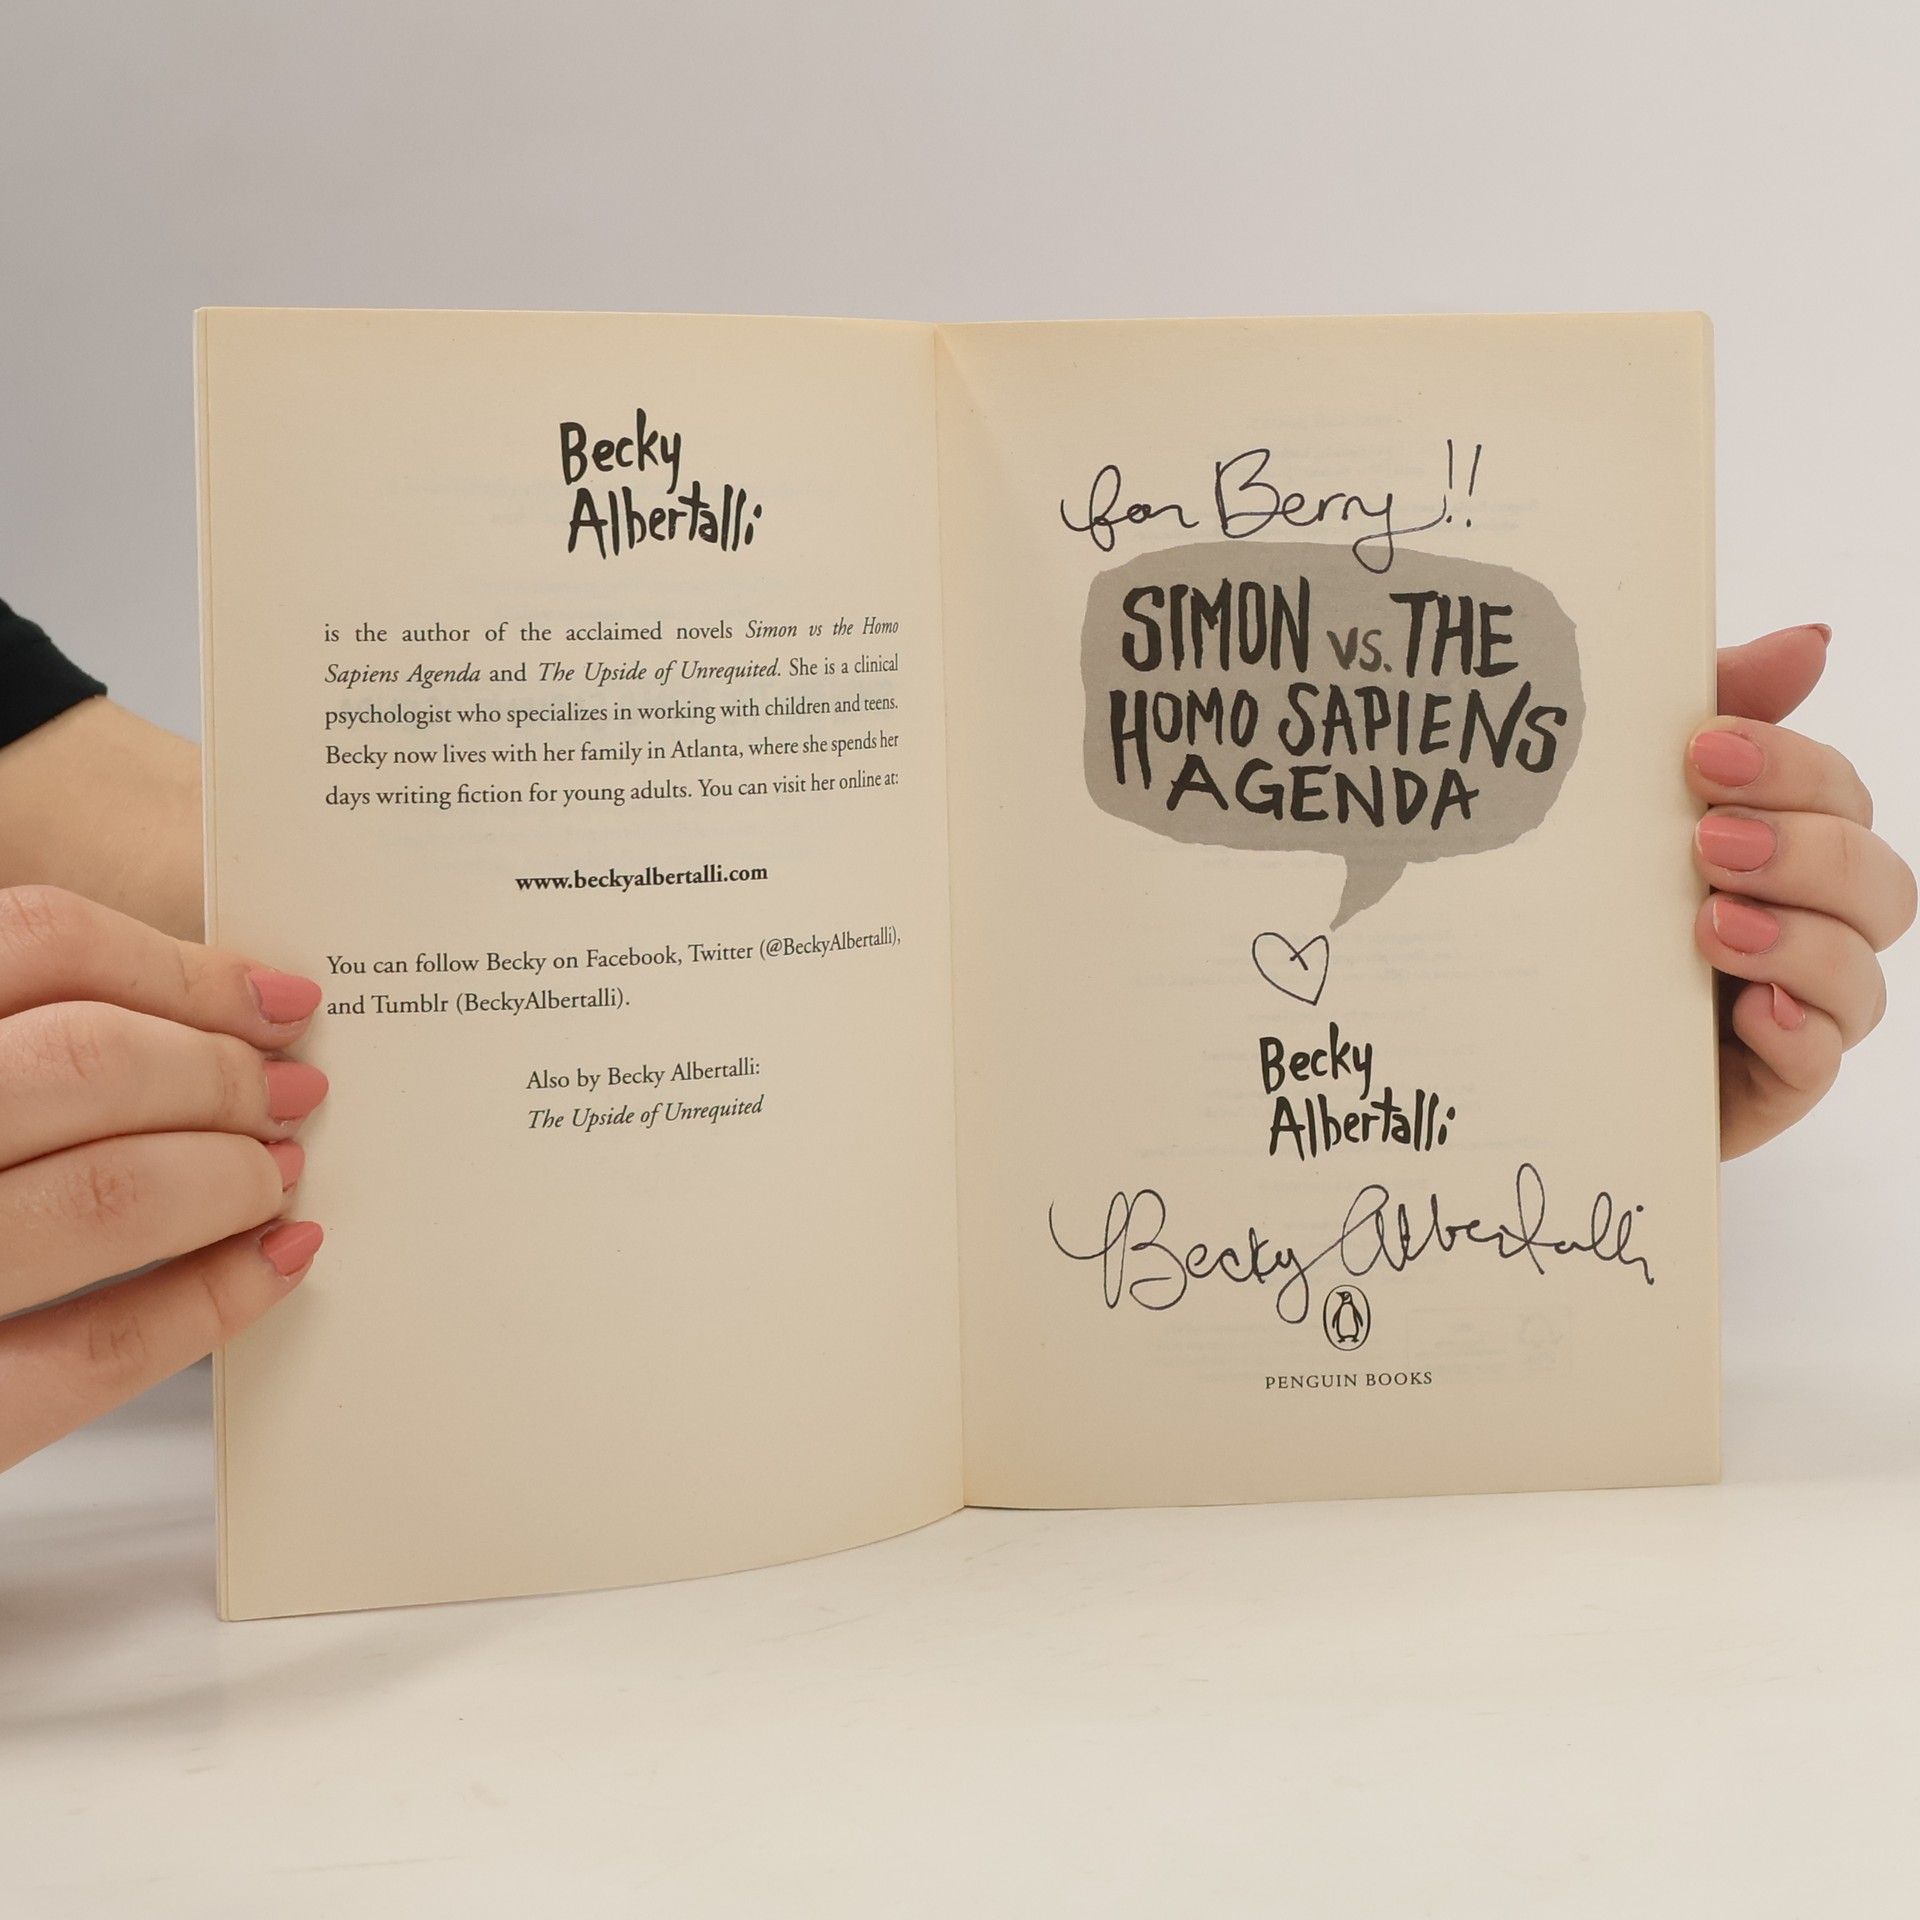 Becky
Albertalli
is the author of the acclaimed novels Simon vs the Homo
Sapiens Agenda and The Upside of Unrequited. She is a clinical
psychologist who specializes in working with children and teens.
Becky now lives with her family in Atlanta, where she spends her
days writing fiction for young adults. You can visit her online at:
www.beckyalbertalli.com
You can follow Becky on Facebook, Twitter (@BeckyAlbertalli),
and Tumblr (BeckyAlbertalli).
Also by Becky Albertalli:
The Upside of Unrequited
for Berry!!
SIMON VS. THE
HOMO SAPIENS
AGENDA
Becky
Albertalli
Becky Albertalli
PENGUIN BOOKS